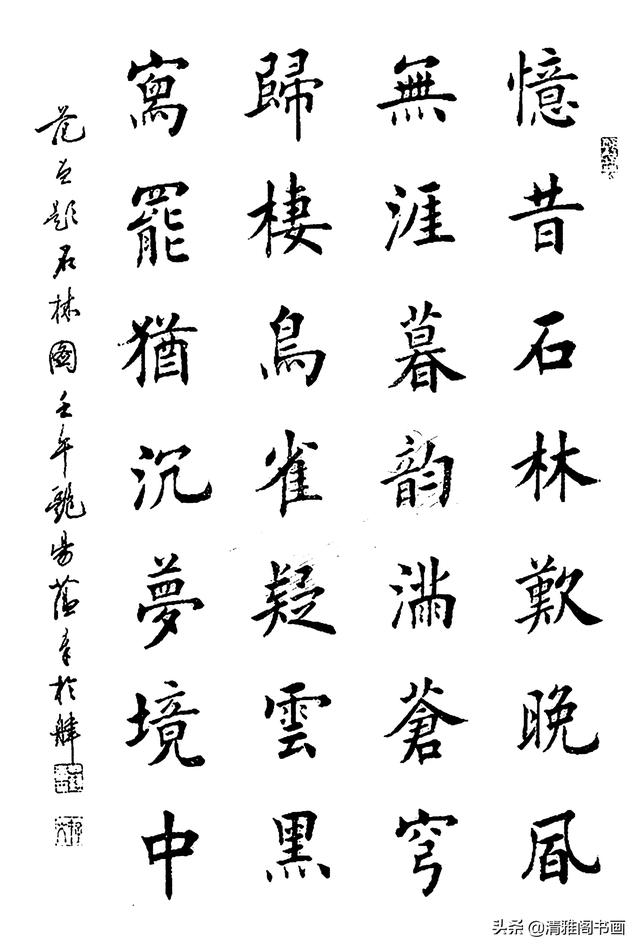 憶昔石林歎晚風
無涯暮韵滿蒼穹
歸棲鳥雀疑雲黑
寫罷猶沉夢境中
范題石林圖壬午艷陽於
头条 @清雅阁书画